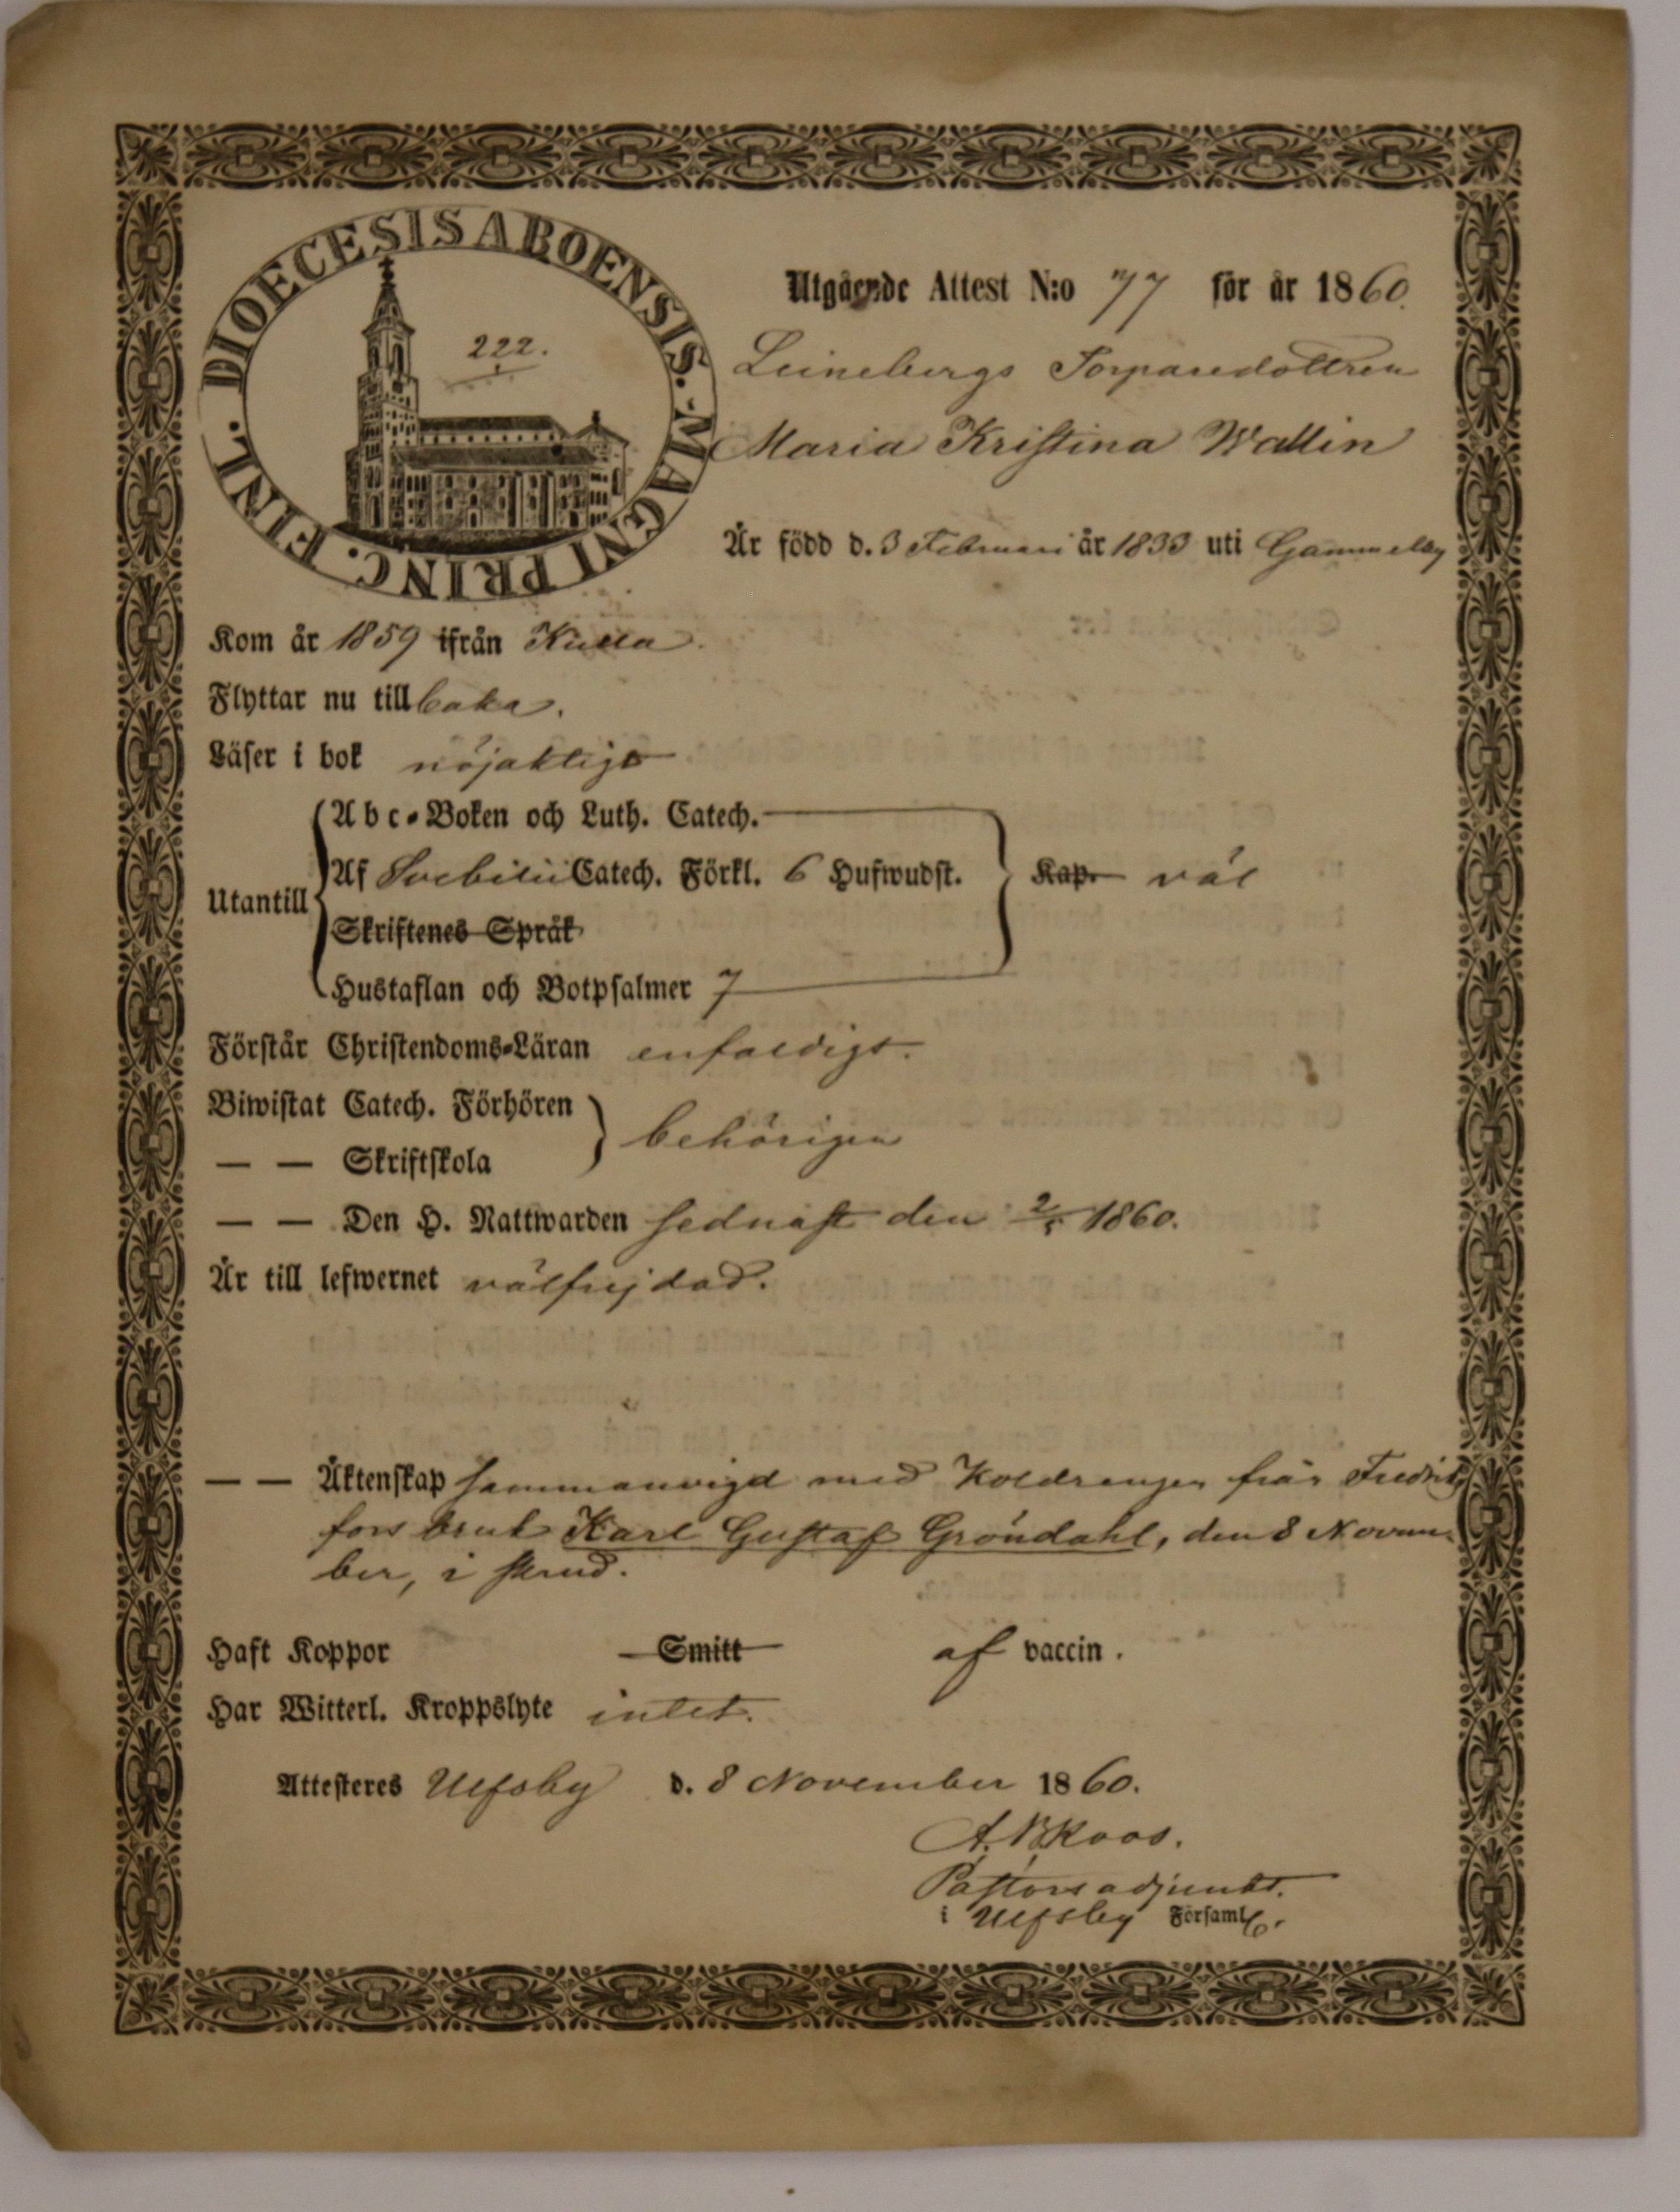 DIOECESIS ABOENSIS. MAGNI PRINC. FINL.
222.
Utgående Attest N:o 77 för år 1860.
Leinebergs Torparedottren
Maria Kristina Wallin
Är född d. 3 Februari år 1833 uti Gammelby
Kom år 1859 ifrån Kulla.
Flyttar nu tillbaka.
Läser i bok nöjaktigt
Utantill
Abc-Boken och Luth. Catech.
Af Svebilii Catech. Förkl. 6 Hufwudst. Kap. väl
Skriftenes Språk
Hustaflan och Botpsalmer 7
Förstår Christendoms-Läran enfaldigt.
Biwistat Catech. Förhören
behörigen
— — Skriftskola
— — Den H. Nattwarden sednast den 2/5 1860.
Är till lefwernet välfrejdad.
— — Äktenskap sammanvigd med Koldrengen från Fredriks
fors bruk Karl Gustaf Gröndahl, den 8 Novem-
ber, i skrud.
Haft Koppor Smitt af vaccin.
Har Witterl. Kroppslyte intet.
Attesteres Ulfsby d. 8 November 1860.
Koos.
Pastorsadjunkt.
i Ulfsby Församl.